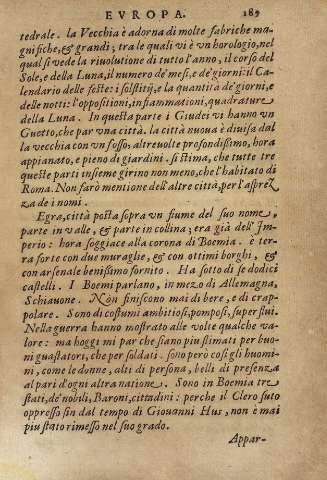 EVROPA. 189
tedrale. la Vecchia è adorna di molte fabriche ma-
gnifiche, & grandi; tra le quali vi è vn horologio, nel
qual si vede la riuolutione di tutto l'anno, il corso del
Sole, e della Luna, il numero de' mesi, e de' giorni: il Ca-
lendario delle feste: i solstitij, e la quantità de' giorni, e
delle notti: l'oppositioni, infiammationi, quadrature
della Luna. In questa parte i Giudei vi hanno vn
Guetto, che par vna città. la città nuoua è diuisa dal
la vecchia con vn fosso, altreuolte profondissimo, hora
appianato, e pieno di giardini. si stima, che tutte tre
queste parti insieme girino non meno, che l'habitato di
Roma. Non farò mentione dell'altre città, per l'asprez
za de i nomi.
Egra, città posta sopra vn fiume del suo nome,
parte in valle, & parte in collina; tra già dell' Im-
perio: hora soggiace alla corona di Boemia. è ter-
ra forte con due muraglie, & con ottimi borghi, &
con arsenale benissimo fornito. Ha sotto di se dodici
castelli. I Boemi parlano, in mezo di Allemagna,
Schiauone. Nòn finiscono mai di bere, e di crap-
polare. Sono di costumi ambitiosi, pomposi, superstiui.
Nella guerra hanno mostrato alle volte qualche va-
lore: ma hoggi mi par che siano piu stimati per buo-
ni guastatori, che per soldati. sono però così gli huomi-
ni, come le donne, alti di persona, belli di presenza
al pari d'ogni altra natione. Sono in Boemia tre
stati, de' nobili, Baroni, cittadini: perche il Clero suto
oppresso sin dal tempo di Giouanni Hus, non è mai
piu stato rimesso nel suo grado.
Appar-